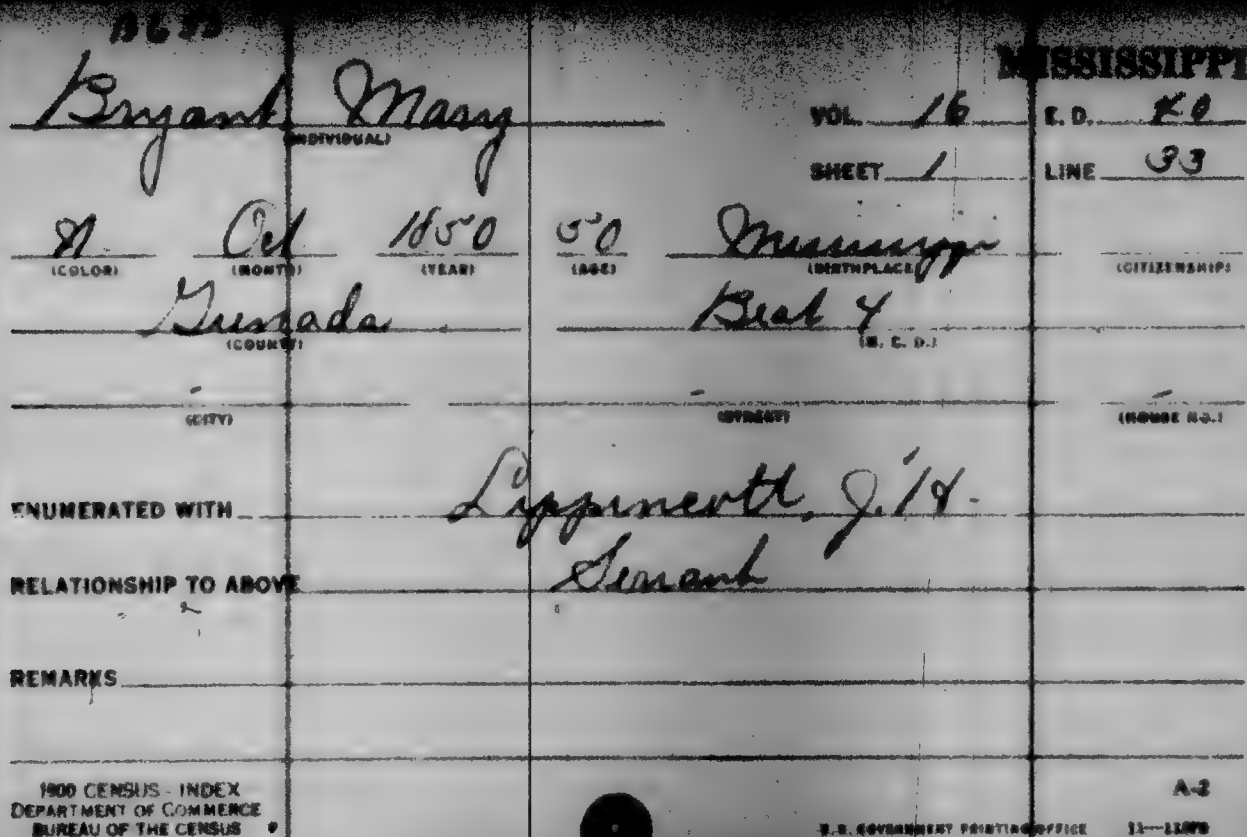 B653
MISSISSIPPI
Bryant Mary
(INDIVIDUAL)
VOL. 16 E. D. 40
SHEET 1 LINE 33
N Oct 1850 50 Mississippi
(COLOR) (MONTH) (YEAR) (AGE) (BIRTHPLACE) (CITIZENSHIP)
Grenada Beat 4
(COUNTY) (M. C. D.)
- - -
(CITY) (STREET) (HOUSE NO.)
ENUMERATED WITH Lippincott, J. H.
RELATIONSHIP TO ABOVE Servant
REMARKS
1900 CENSUS - INDEX
DEPARTMENT OF COMMERCE
BUREAU OF THE CENSUS
A-2
U.S. GOVERNMENT PRINTING OFFICE